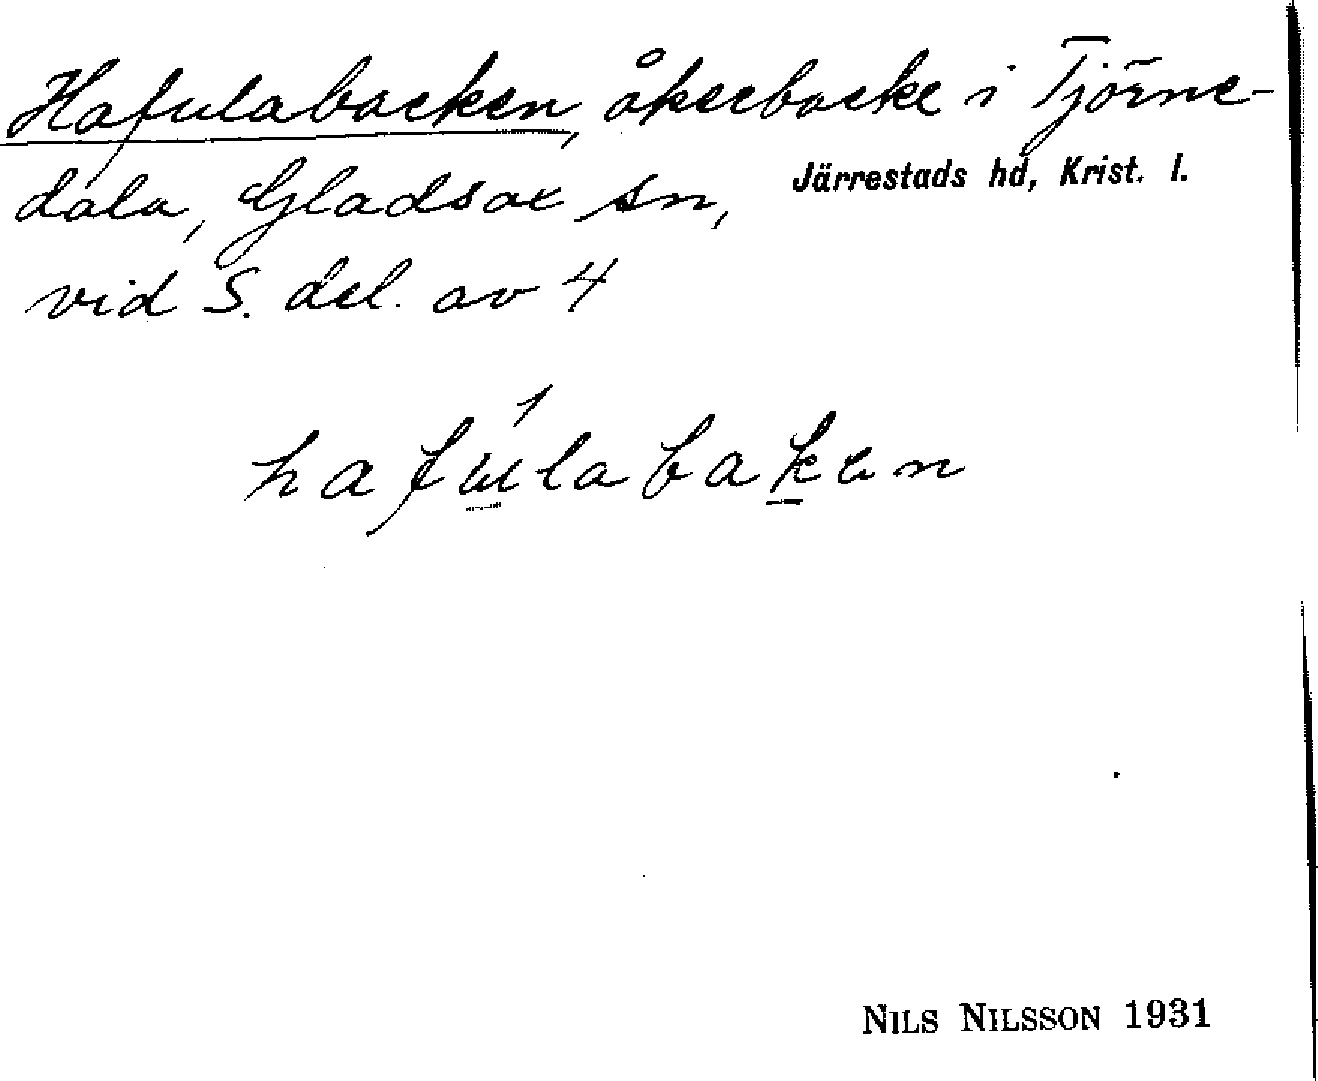 Hafulabacken, åkerbacke i Tjörne-
dala, Gladsax sn, Järrestads hd, Krist. l.
vid S. del. av 4
hafúlabaken
NILS NILSSON 1931